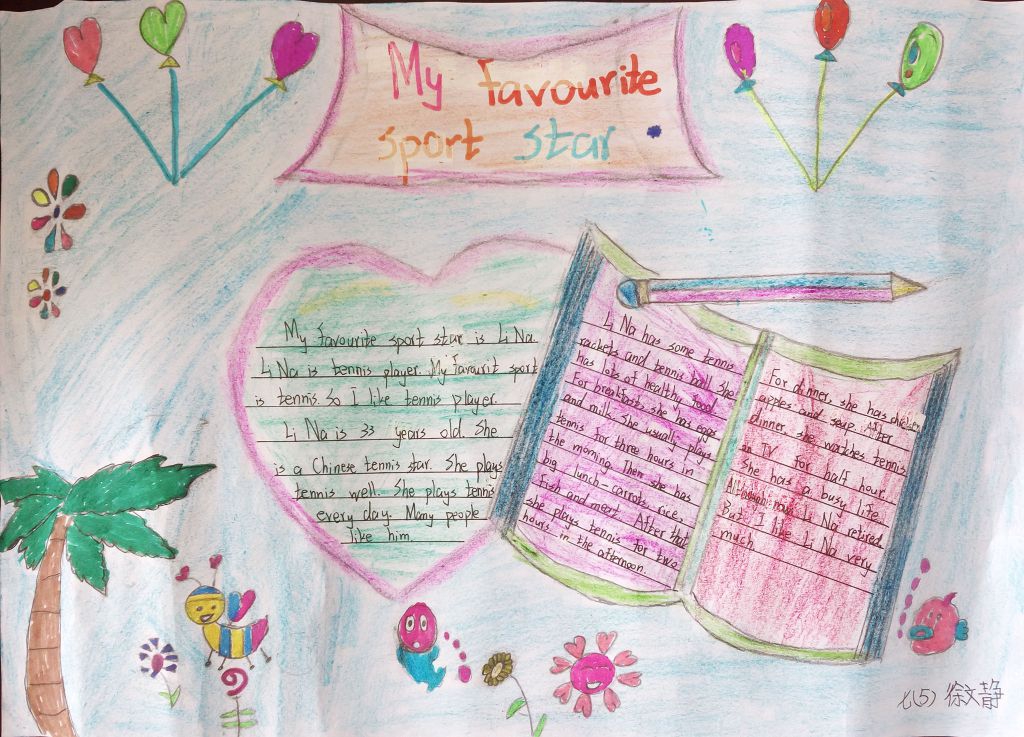 My favourite
sport star
My favourite sport star is Li Na.
Li Na is tennis player. My favourit sport
is tennis. So I like tennis player.
Li Na is 33 years old. She
is a Chinese tennis star. She plays
tennis well. She plays tennis
every day. Many people
like him.
Li Na has some tennis
rackets and tennis ball. She
has lots of healthy food.
For breakfast, she has eggs
and milk. She usually plays
tennis for three hours in
the morning. Then she has
big lunch-carrots, rice,
fish and meat. After that
she plays tennis for two
hours in the afternoon.
For dinner, she has chicken
apples and soup. After
dinner she watches tennis
on TV for half hour.
She has a busy life.
now Li Na retired.
But I like Li Na very
much
七(5) 徐文静